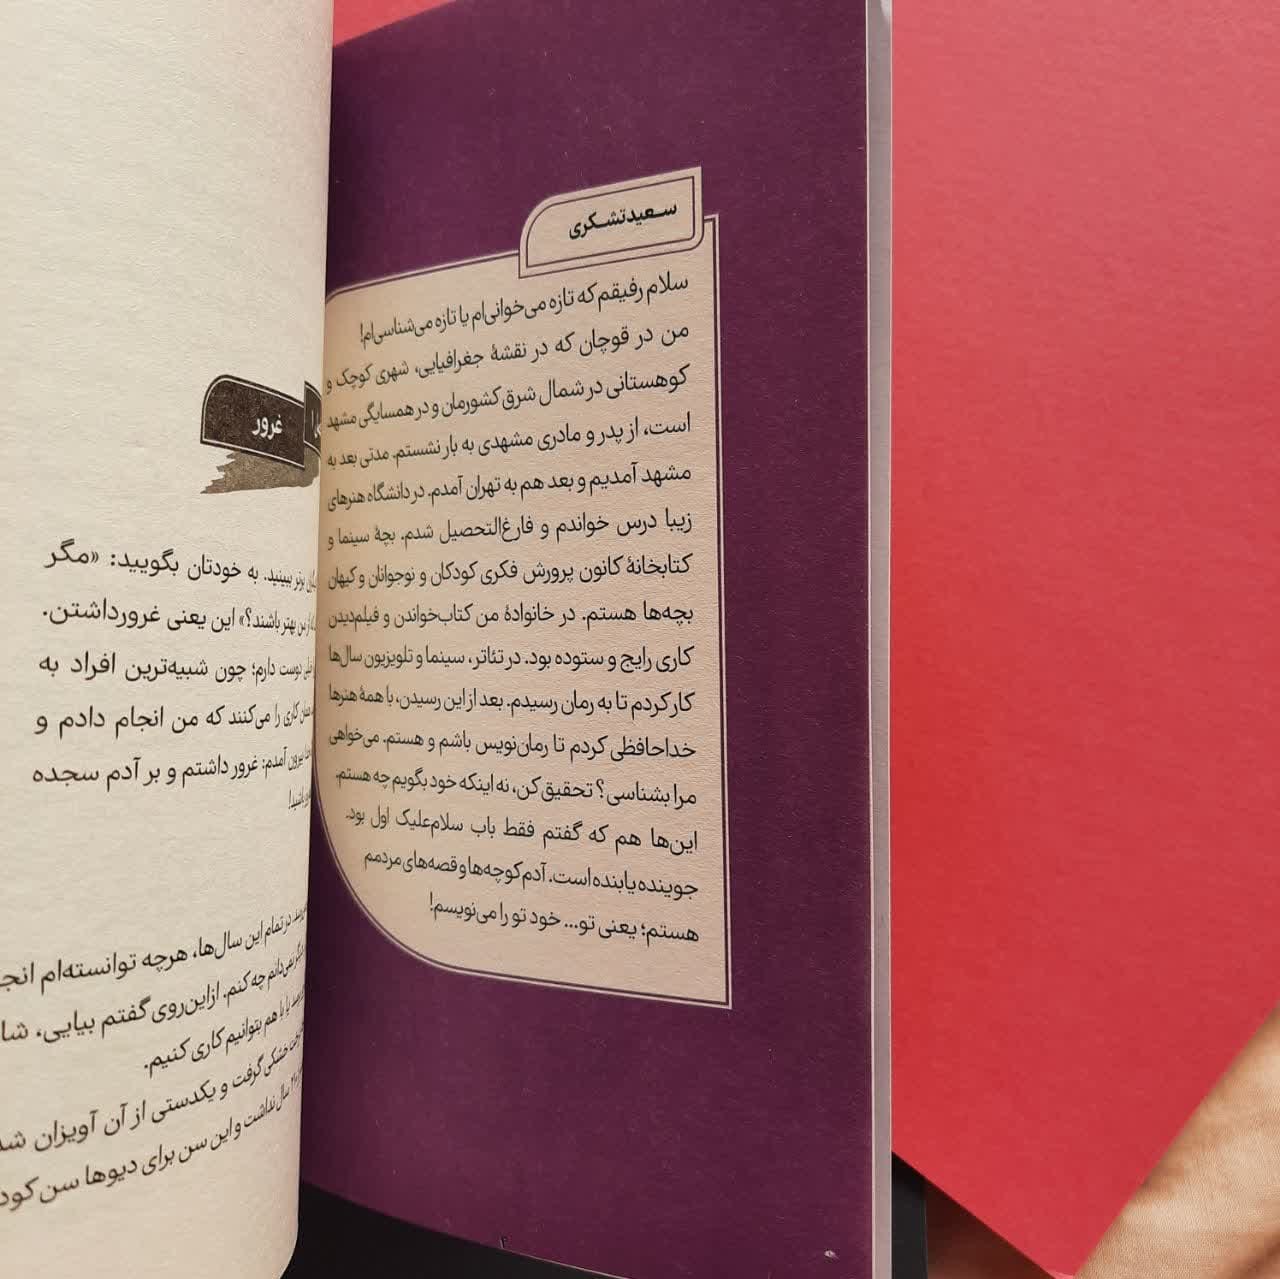 سعیدتشکری
سلام رفیقم که تازه می‌خوانی‌ام یا تازه می‌شناسی‌ام!
من در قوچان که در نقشهٔ جغرافیایی، شهری کوچک و
کوهستانی در شمال شرق کشورمان و در همسایگی مشهد
است، از پدر و مادری مشهدی به بار نشستم. مدتی بعد به
مشهد آمدیم و بعد هم به تهران آمدم. در دانشگاه هنرهای
زیبا درس خواندم و فارغ‌التحصیل شدم. بچهٔ سینما و
کتابخانهٔ کانون پرورش فکری کودکان و نوجوانان و کیهان
بچه‌ها هستم. در خانوادهٔ من کتاب‌خواندن و فیلم‌دیدن
کاری رایج و ستوده بود. در تئاتر، سینما و تلویزیون سال‌ها
کار کردم تا به رمان رسیدم. بعد از این رسیدن، با همهٔ هنرها
خداحافظی کردم تا رمان‌نویس باشم و هستم. می‌خواهی
مرا بشناسی؟ تحقیق کن، نه اینکه خود بگویم چه هستم.
این‌ها هم که گفتم فقط باب سلام‌علیک اول بود.
جوینده یابنده است. آدم کوچه‌ها و قصه‌های مردمم
هستم؛ یعنی تو... خود تو را می‌نویسم!
۲
غرور
برتر ببینید. به خودتان بگویید: «مگر
از من بهتر باشند؟» این یعنی غرورداشتن.
دوست دارم؛ چون شبیه‌ترین افراد به
کاری را می‌کنند که من انجام دادم و
بیرون آمدم: غرور داشتم و بر آدم سجده
در تمام این سال‌ها، هرچه توانسته‌ام انجا
نمی‌دانم چه کنم. ازاین‌روی گفتم بیایی، شا
با هم بتوانیم کاری کنیم.
خشکی گرفت و یکدستی از آن آویزان شد
سال نداشت و این سن برای دیوها سن کود